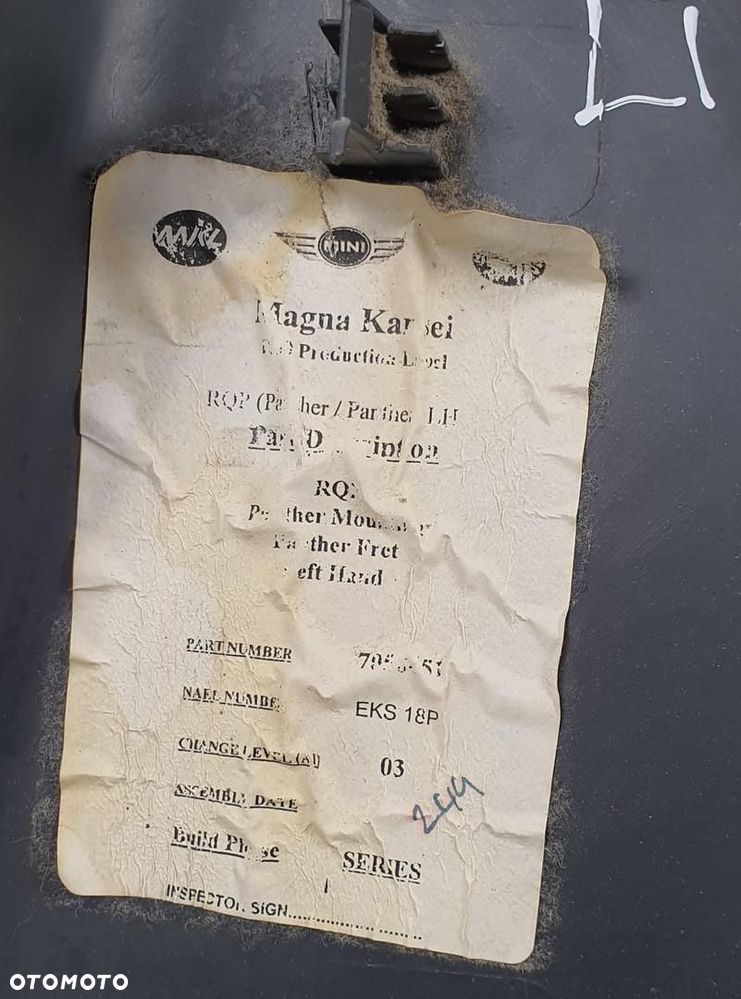 LI
MINI
Magna Kansei
Production Label
RQP (Panther / Panther LH
Part Description
Panther Mounting
Panther Fret
Left Hand
PART NUMBER
NAEL NUMBE EKS 18P
CHANGE LEVEL (AI) 03
ASSEMBLY DATE
Build Phase SERIES
INSPECTOR SIGN..................
OTOMOTO